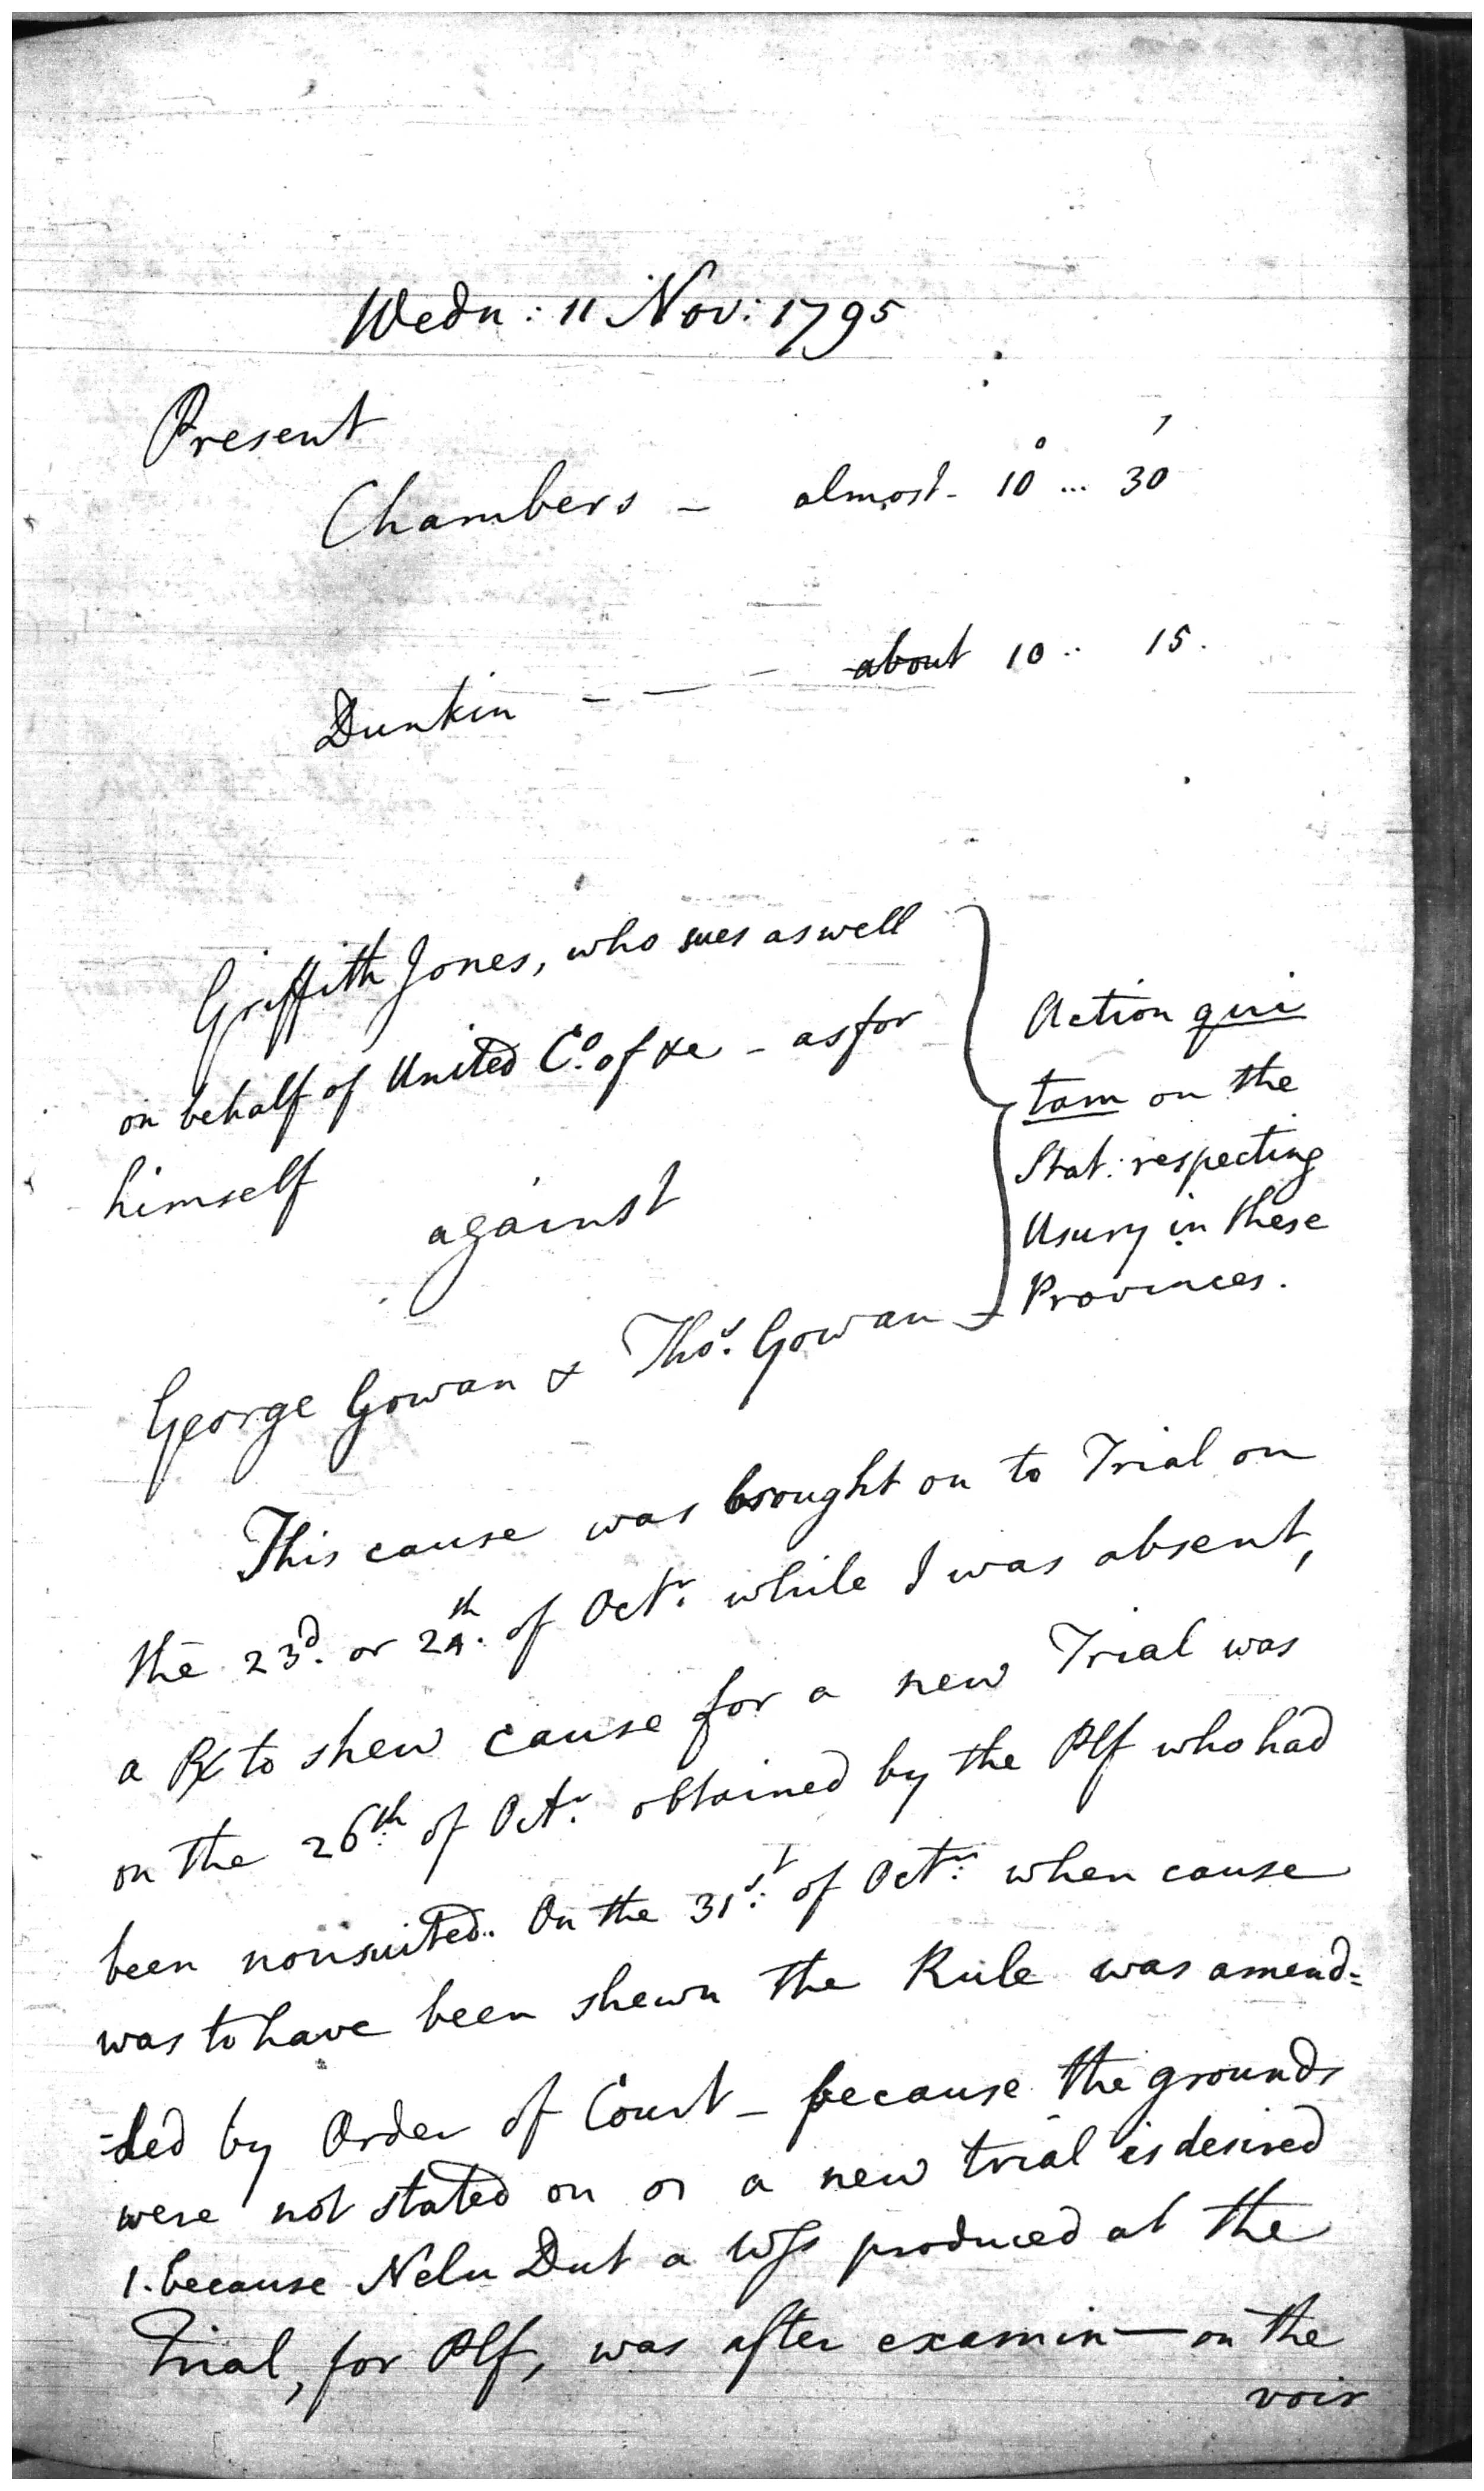 Wedn: 11 Nov: 1795
Present
Chambers - almost - 10° ... 30'
Dunkin - - - about 10 .. 15.
Griffith Jones, who sues as well
on behalf of United Co. of &c - as for
himself
against
George Gowan & Thos. Gowan -
Action qui
tam on the
Stat: respecting
Usury in these
Provinces.
This cause was brought on to Trial on
the 23d. or 24th. of Octr. while I was absent,
a R to shew cause for a new Trial was
on the 26th. of Octr. obtained by the Plf who had
been nonsuited. On the 31st. of Octr: when cause
was to have been shewn the Rule was amend=
=ded by Order of Court - because the grounds
were not stated on a new trial is desired
1. because Nelu Dut a Wss produced at the
Trial, for Plf, was after examin— on the
voir